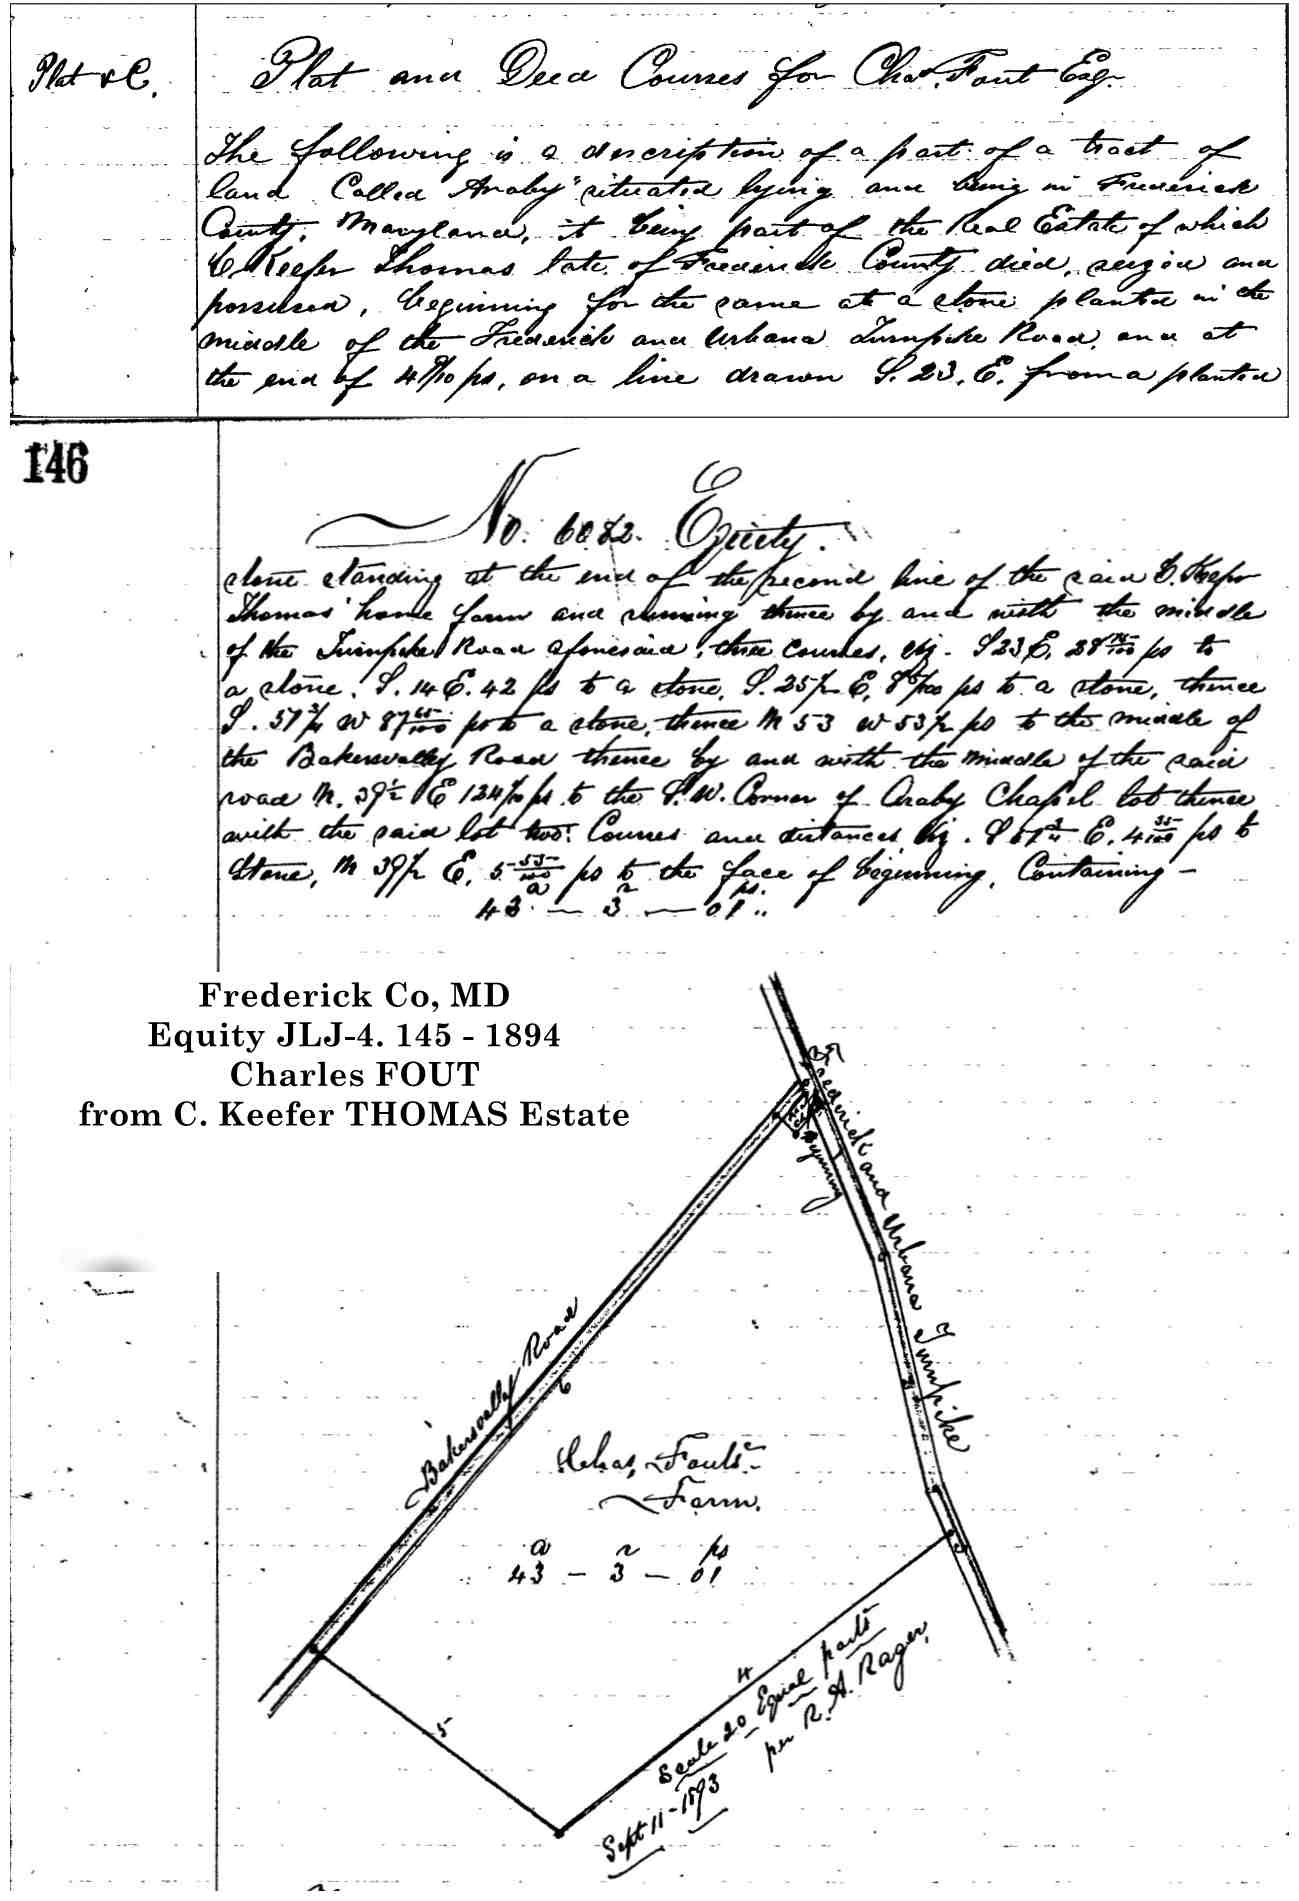 Plat & C.
Plat and Deed Courses for Chas. Fout Esqr.
The following is a description of a part of a tract of
land Called Araby" situated lying and being in Frederick
County, Maryland, it being part of the Real Estate of which
C. Keefer Thomas late of Frederick County died, seized and
possessed, beginning for the same at a stone planted in the
middle of the Frederick and Urbana Turnpike Road, and at
the end of ps, on a line drawn S. 23. E. from a planted
146
No. 6082. Equity.
stone standing at the end of the second line of the said C. Keefer
Thomas' home farm and running thence by and with the middle
of the Turnpike Road aforesaid, three courses, viz. S 23 E, ps to
a stone, S. 14 E. 42 ps to a stone, S. 25 1/2 E, ps to a stone, thence
S. 57 3/4 W 87 65/100 ps to a stone, thence N 53 W 53 1/2 ps to the middle of
the Bakersvally Road thence by and with the middle of the said
road N. 39 1/2 E ps to the S.W. Corner of Araby Chapel lot thence
with the said lot two Courses and distances viz. S E. 4 35/100 ps to
Stone, N 39 1/2 E, 5 55/100 ps to the face of beginning, Containing -
a r ps.
43 - 3 - 01 ..
Frederick Co, MD
Equity JLJ-4. 145 - 1894
Charles FOUT
from C. Keefer THOMAS Estate
Frederick and Urbana Turnpike
Beginning
Bakersvally Road
6
Chas. Fout's
Farm.
a r ps
43 - 3 - 01
3
4
5
Scale 20 Equal parts
per R. A. Rager,
Sept 11 - 1893